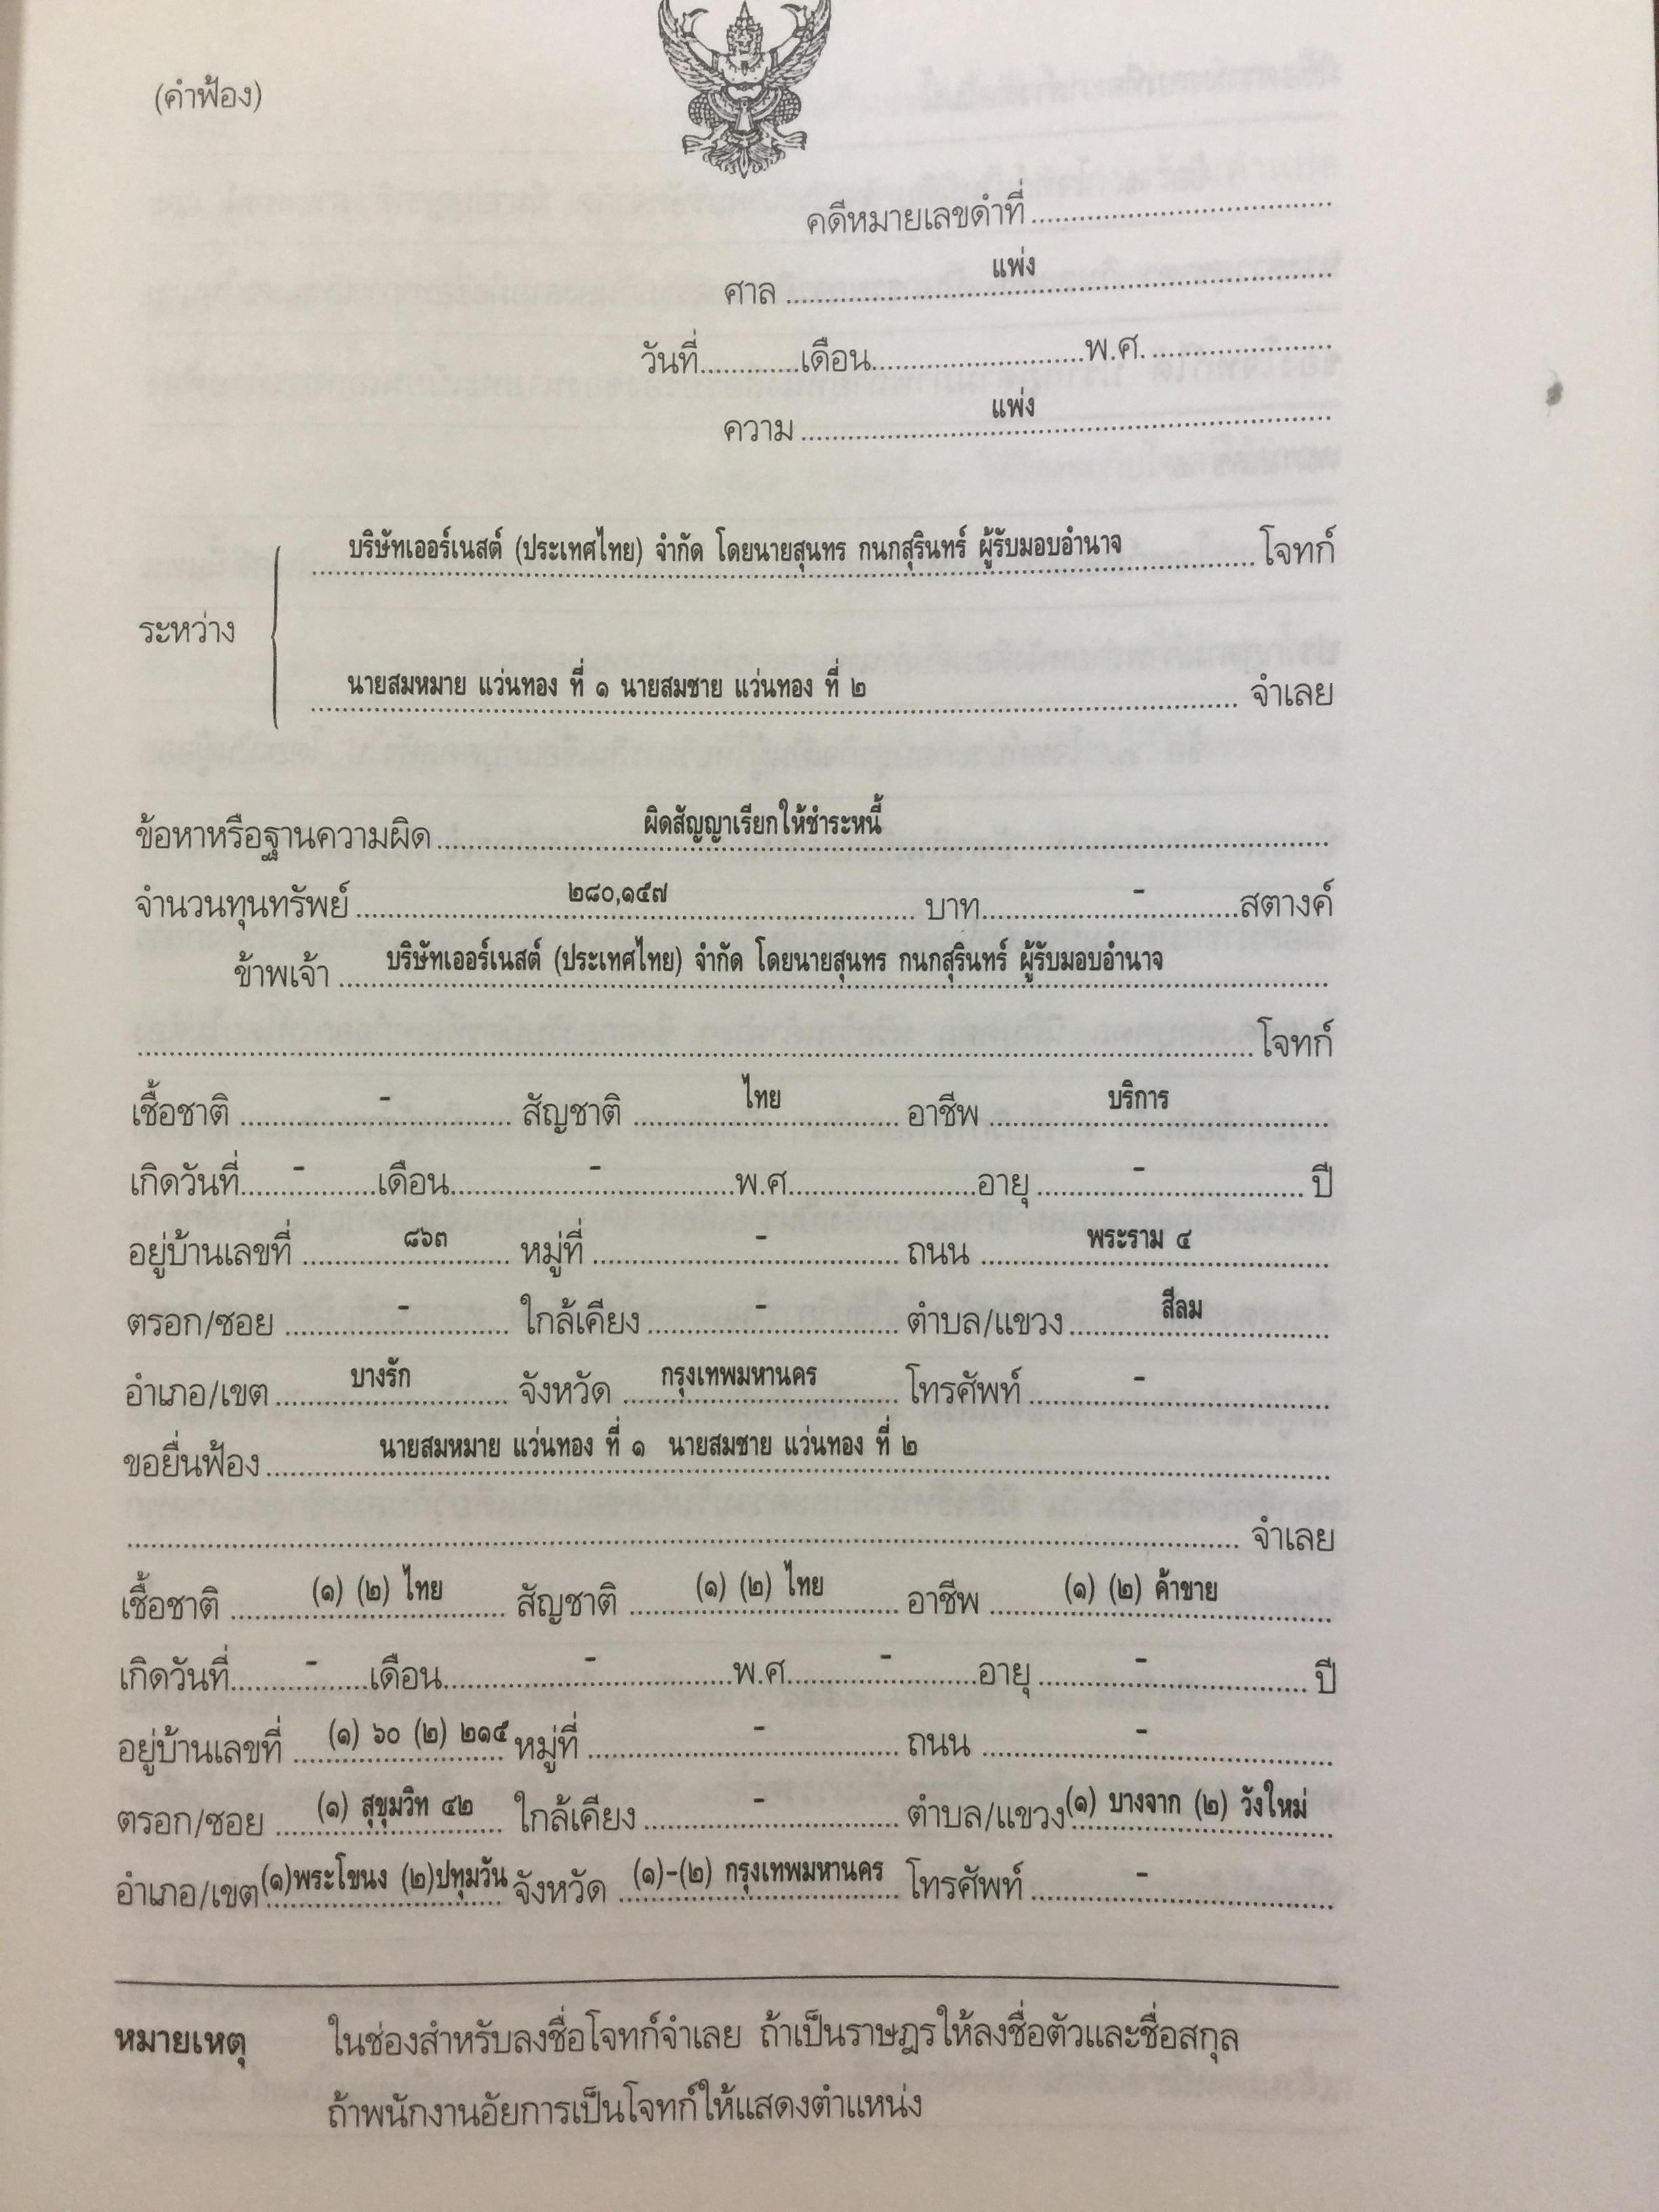 (คำฟ้อง)
คดีหมายเลขดำที่
ศาล แพ่ง
วันที่ เดือน พ.ศ.
ความ แพ่ง
บริษัทเออร์เนสต์ (ประเทศไทย) จำกัด โดยนายสุนทร กนกสุรินทร์ ผู้รับมอบอำนาจ โจทก์
ระหว่าง
นายสมหมาย แว่นทอง ที่ ๑ นายสมชาย แว่นทอง ที่ ๒ จำเลย
ข้อหาหรือฐานความผิด ผิดสัญญาเรียกให้ชำระหนี้
จำนวนทุนทรัพย์ ๒๘๐,๑๕๗ บาท - สตางค์
ข้าพเจ้า บริษัทเออร์เนสต์ (ประเทศไทย) จำกัด โดยนายสุนทร กนกสุรินทร์ ผู้รับมอบอำนาจ
โจทก์
เชื้อชาติ - สัญชาติ ไทย อาชีพ บริการ
เกิดวันที่ - เดือน - พ.ศ. อายุ - ปี
อยู่บ้านเลขที่ ๘๖๓ หมู่ที่ - ถนน พระราม ๔
ตรอก/ซอย - ใกล้เคียง - ตำบล/แขวง สีลม
อำเภอ/เขต บางรัก จังหวัด กรุงเทพมหานคร โทรศัพท์ -
ขอยื่นฟ้อง นายสมหมาย แว่นทอง ที่ ๑ นายสมชาย แว่นทอง ที่ ๒
จำเลย
เชื้อชาติ (๑) (๒) ไทย สัญชาติ (๑) (๒) ไทย อาชีพ (๑) (๒) ค้าขาย
เกิดวันที่ - เดือน - พ.ศ. - อายุ - ปี
อยู่บ้านเลขที่ (๑) ๖๐ (๒) ๒๑๕ หมู่ที่ - ถนน -
ตรอก/ซอย (๑) สุขุมวิท ๔๒ ใกล้เคียง - ตำบล/แขวง (๑) บางจาก (๒) วังใหม่
อำเภอ/เขต (๑)พระโขนง (๒)ปทุมวัน จังหวัด (๑)-(๒) กรุงเทพมหานคร โทรศัพท์ -
หมายเหตุ ในช่องสำหรับลงชื่อโจทก์จำเลย ถ้าเป็นราษฎรให้ลงชื่อตัวและชื่อสกุล
ถ้าพนักงานอัยการเป็นโจทก์ให้แสดงตำแหน่ง